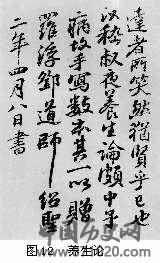 達者所笑然猶賢乎已也
以嵇叔夜養生論頗中余
病故手寫數本其一以贈
羅浮鄧道師 紹聖
二年四月八日書
图12 养生论